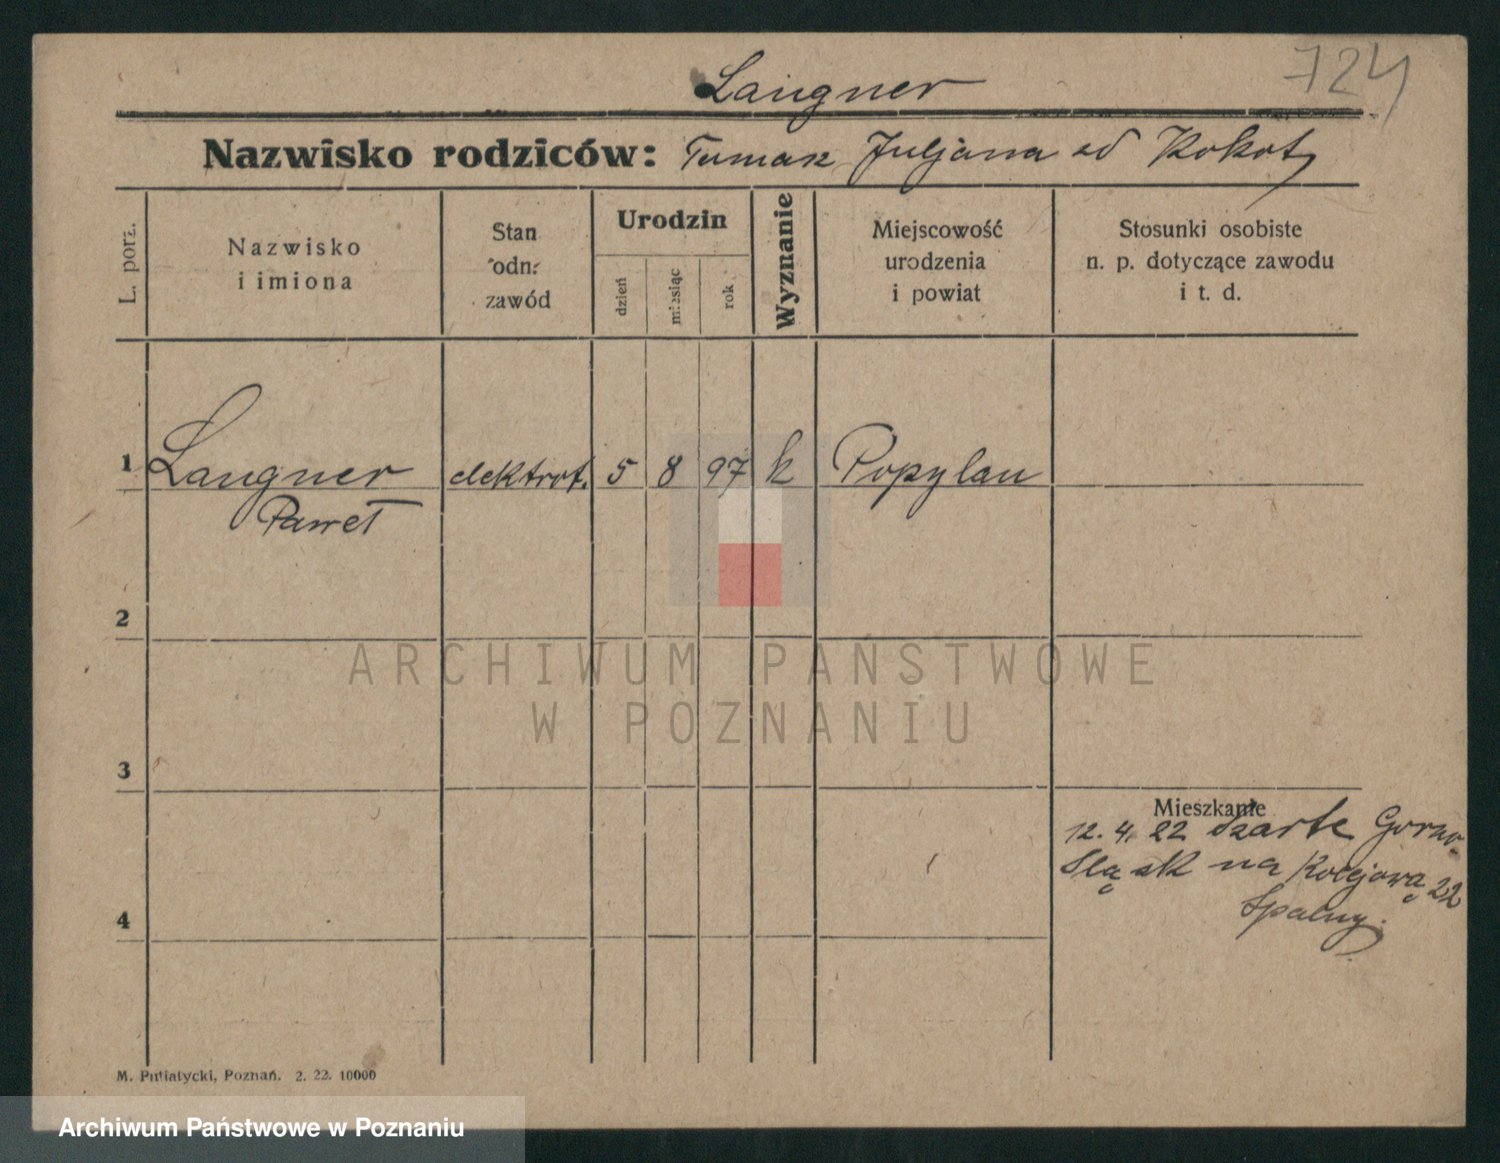 724
Langner
Nazwisko rodziców: Tumasz Juljana zd Kokot
L. porz.
Nazwisko
i imiona
Stan
odn.
zawód
Urodzin
dzień
miesiąc
rok
Wyznanie
Miejscowość
urodzenia
i powiat
Stosunki osobiste
n. p. dotyczące zawodu
i t. d.
1 Langner elektrot. 5 8 97 k Popylau
Paweł
2
3
4
Mieszkanie
12. 4. 22 Gorno
Sląsk na 22
M. Putiatycki, Poznań. 2. 22. 10000
ARCHIWUM PAŃSTWOWE
W POZNANIU
Archiwum Państwowe w Poznaniu